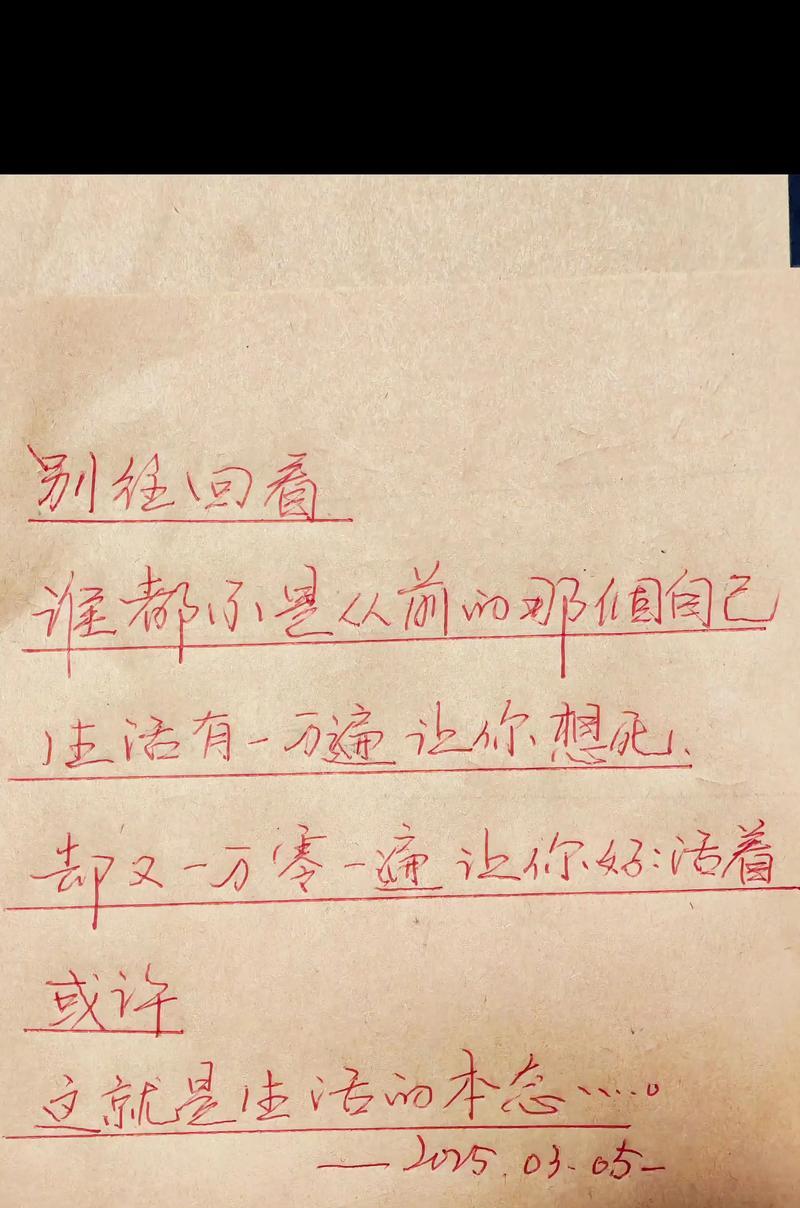 别往回看
谁都不是从前的那個自己
生活有一万遍让你想死、
却又一万零一遍让你好:活着
或许
这就是生活的本态……。
——2025.03-05-